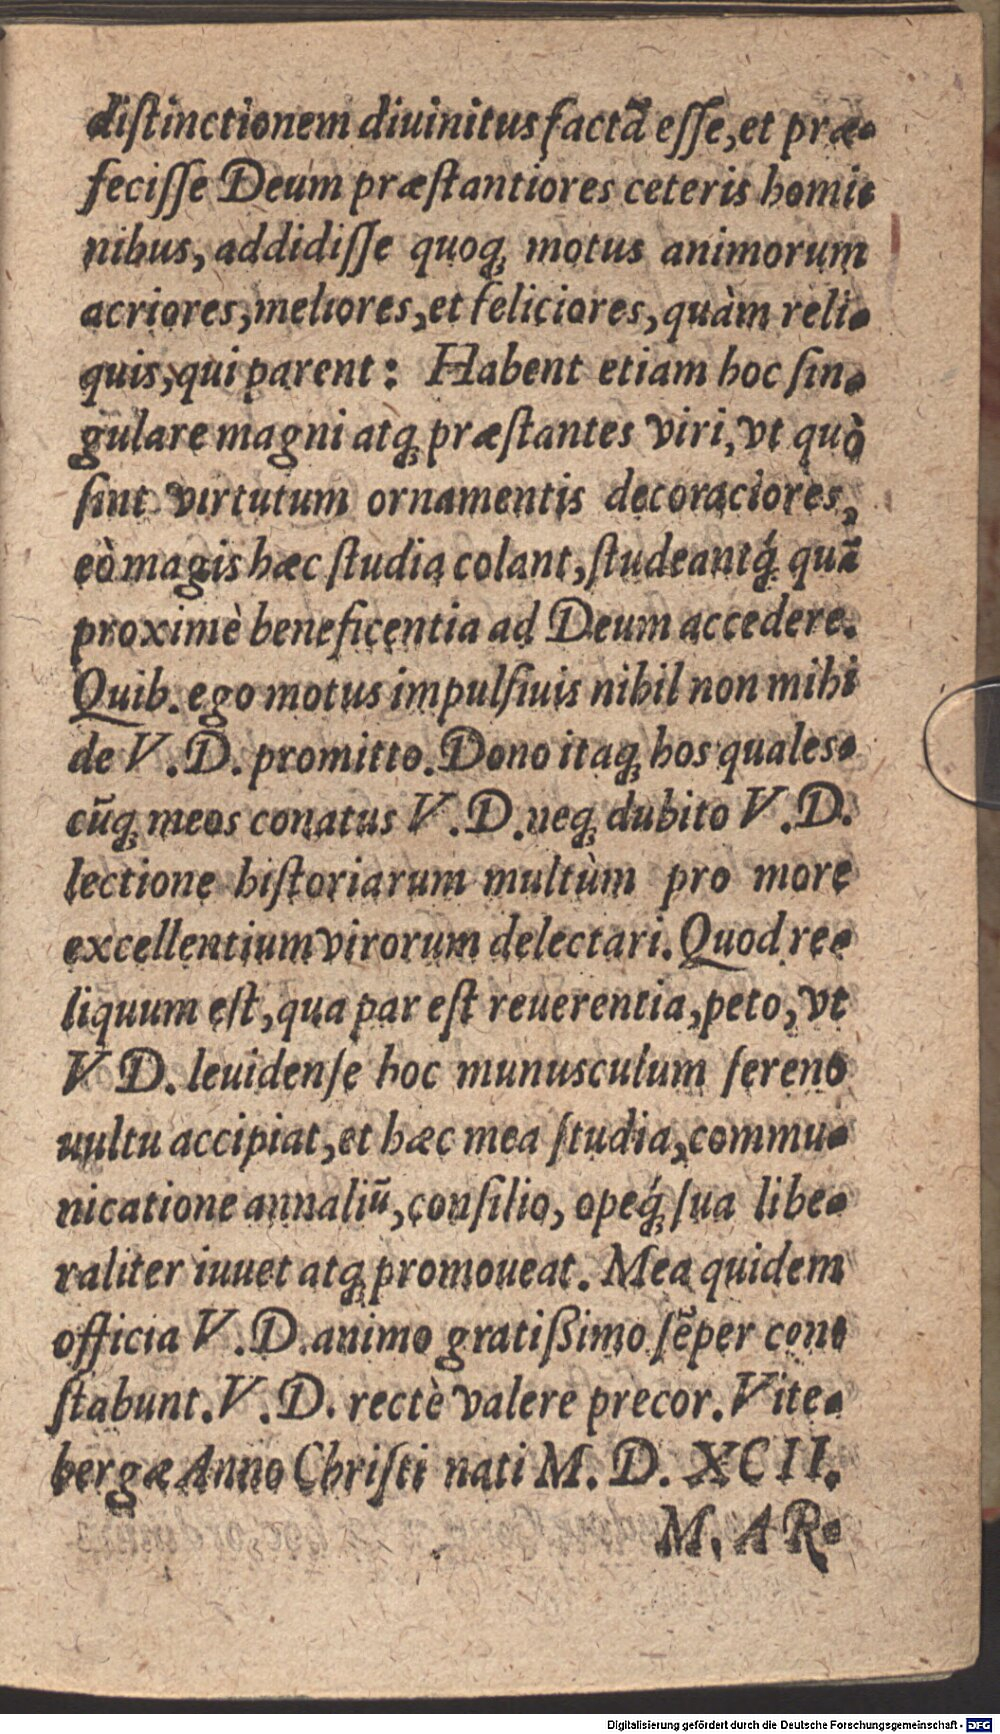 diſtinctionem diuinitus factã eſſe, et præ-
feciſſe Deum præſtantiores ceteris homi-
nibus, addidiſſe quoq; motus animorum
acriores, meliores, et feliciores, quàm reli-
quis, qui parent: Habent etiam hoc ſin-
gulare magni atq; præſtantes viri, vt quò
ſint virtutum ornamentis decoraciores,
eò magis hæc ſtudia colant, ſtudeantq́; quã
proximè beneficentia ad Deum accedere.
Quib. ego motus impulſiuis nihil non mihi
de V. D. promitto. Dono itaq; hos quales-
cũq; meos conatus V. D. neq; dubito V. D.
lectione hiſtoriarum multùm pro more
excellentium virorum delectari. Quod re-
liquum eſt, qua par eſt reuerentia, peto, vt
V D. leuidenſe hoc munusculum ſereno
uultu accipiat, et hæc mea ſtudia, commu-
nicatione annaliũ, conſilio, opeq́; ſua libe-
raliter iuuet atq; promoueat. Mea quidem
officia V. D. animo gratißimo ſẽper con-
ſtabunt. V. D. rectè valere precor. Vite-
bergæ Anno Chriſti nati M. D. XCII.
M. AR-
Digitalisierung gefördert durch die Deutsche Forschungsgemeinschaft - DFG